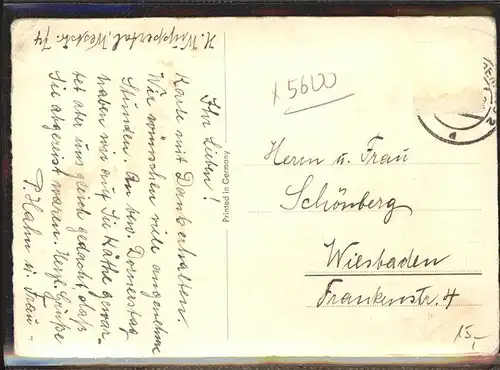 H. Wuppertal, Weststr. 74
Ihr Lieben!
Karte mit Dank erhalten.
Wir wünschen viele angenehme
Stunden. An bew. Donnerstag
haben wir auf Sie Käthe gewar-
tet aber uns gleich gedacht, daß
Sie abgereist waren. Herzl. Grüße
P. Hahn u. Frau -
Printed in Germany
x 5600
Herrn u. Frau
Schönberg
Wiesbaden
Frankenstr. 4
15,-